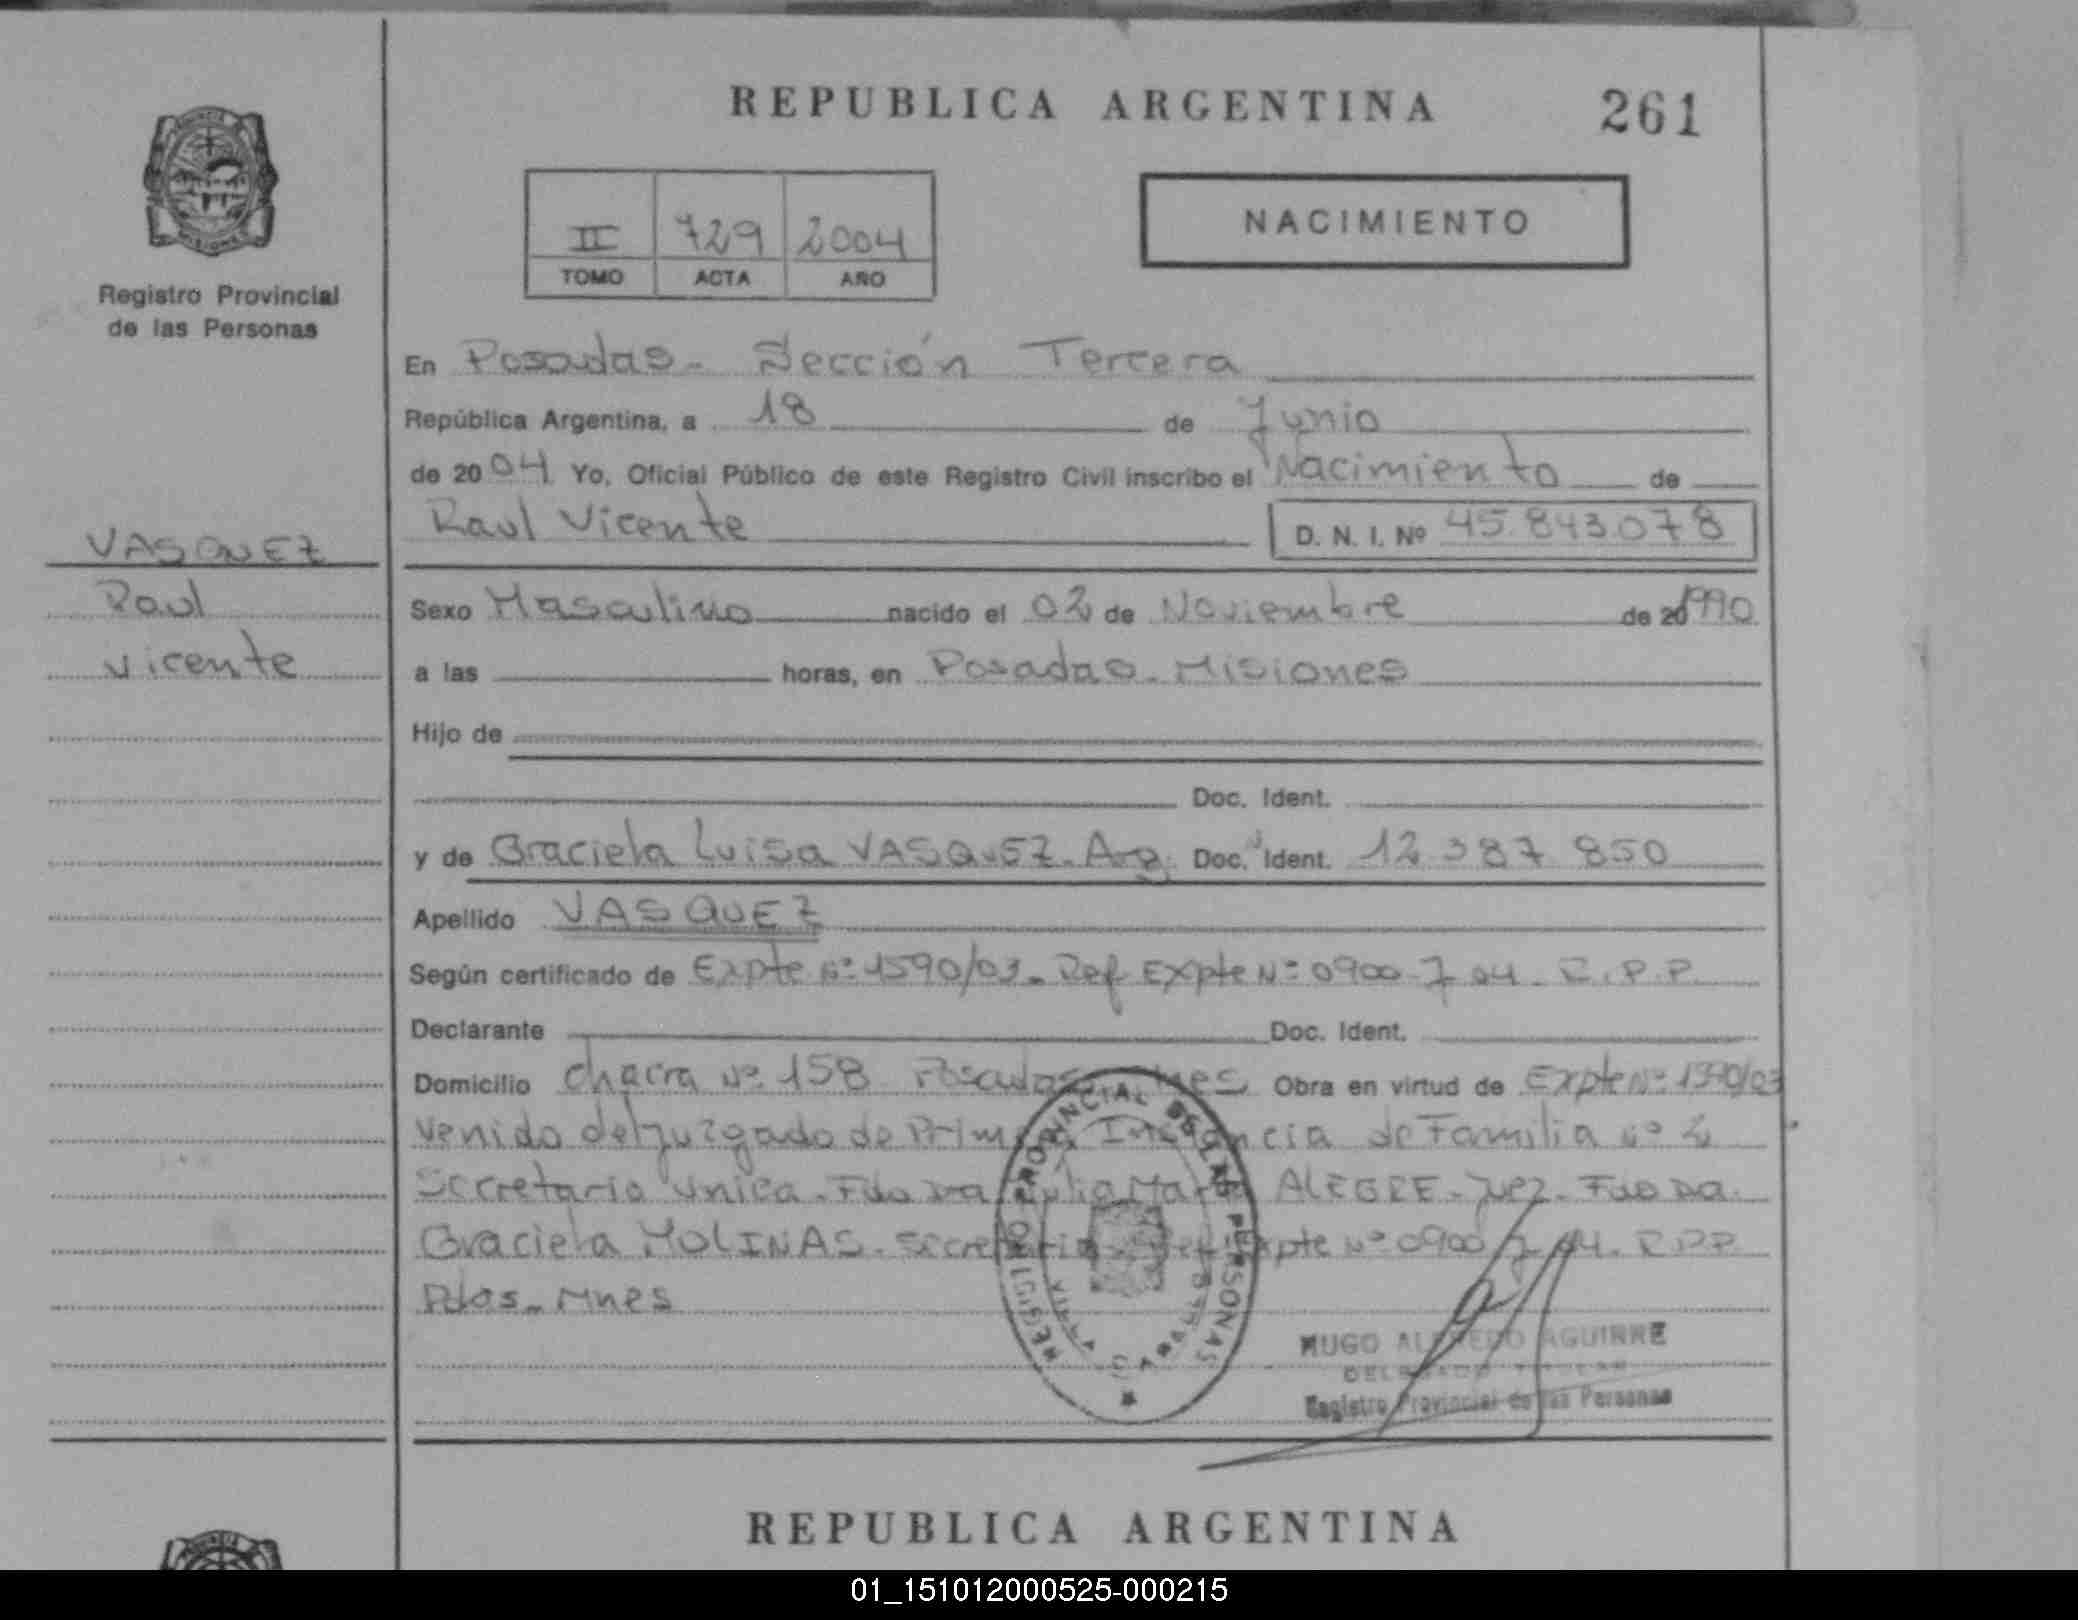 REPUBLICA ARGENTINA
261
II 729 2004
TOMO ACTA AÑO
NACIMIENTO
Registro Provincial
de las Personas
VASQUEZ
Raul
Vicente
En Posadas - Sección Tercera
República Argentina, a 18 de Junio
de 2004 Yo, Oficial Público de este Registro Civil inscribo el Nacimiento de
Raul Vicente D. N. I. Nº 45.843.078
Sexo Masculino nacido el 02 de Noviembre de 1990
a las horas, en Posadas - Misiones
Hijo de
Doc. Ident.
y de Graciela Luisa VASQUEZ - Arg. Doc. Ident. 12 387 850
Apellido VASQUEZ
Según certificado de Expte Nº 1590/03 - Ref Expte Nº 0900-J-04 - R.P.P.
Declarante Doc. Ident.
Domicilio Chacra Nº 158 Posadas Mnes Obra en virtud de Expte Nº 1590/03
Venido del Juzgado de Primera Instancia de Familia Nº 2
Secretaria Unica - Fdo Dra Julia Marta ALEGRE - Juez - Fdo Dra.
Graciela MOLINAS - Secretaria - Ref Expte Nº 0900 J 04 - R.P.P.
Pdas - Mnes
REGISTRO PROVINCIAL DE LAS PERSONAS
HUGO ALFREDO AGUIRRE
DELEGADO TITULAR
Registro Provincial de las Personas
REPUBLICA ARGENTINA
01_151012000525-000215